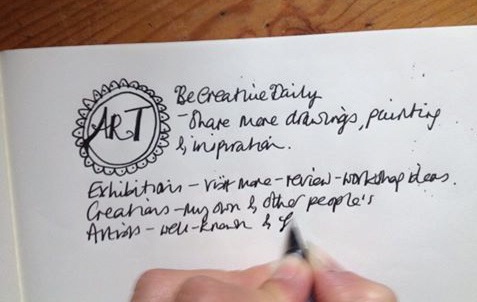 ART
Be Creative Daily
- Share more drawings, painting
& inspiration.
Exhibitions - visit more - review - workshop ideas.
Creations - my own & other people's
Artists - well-known &